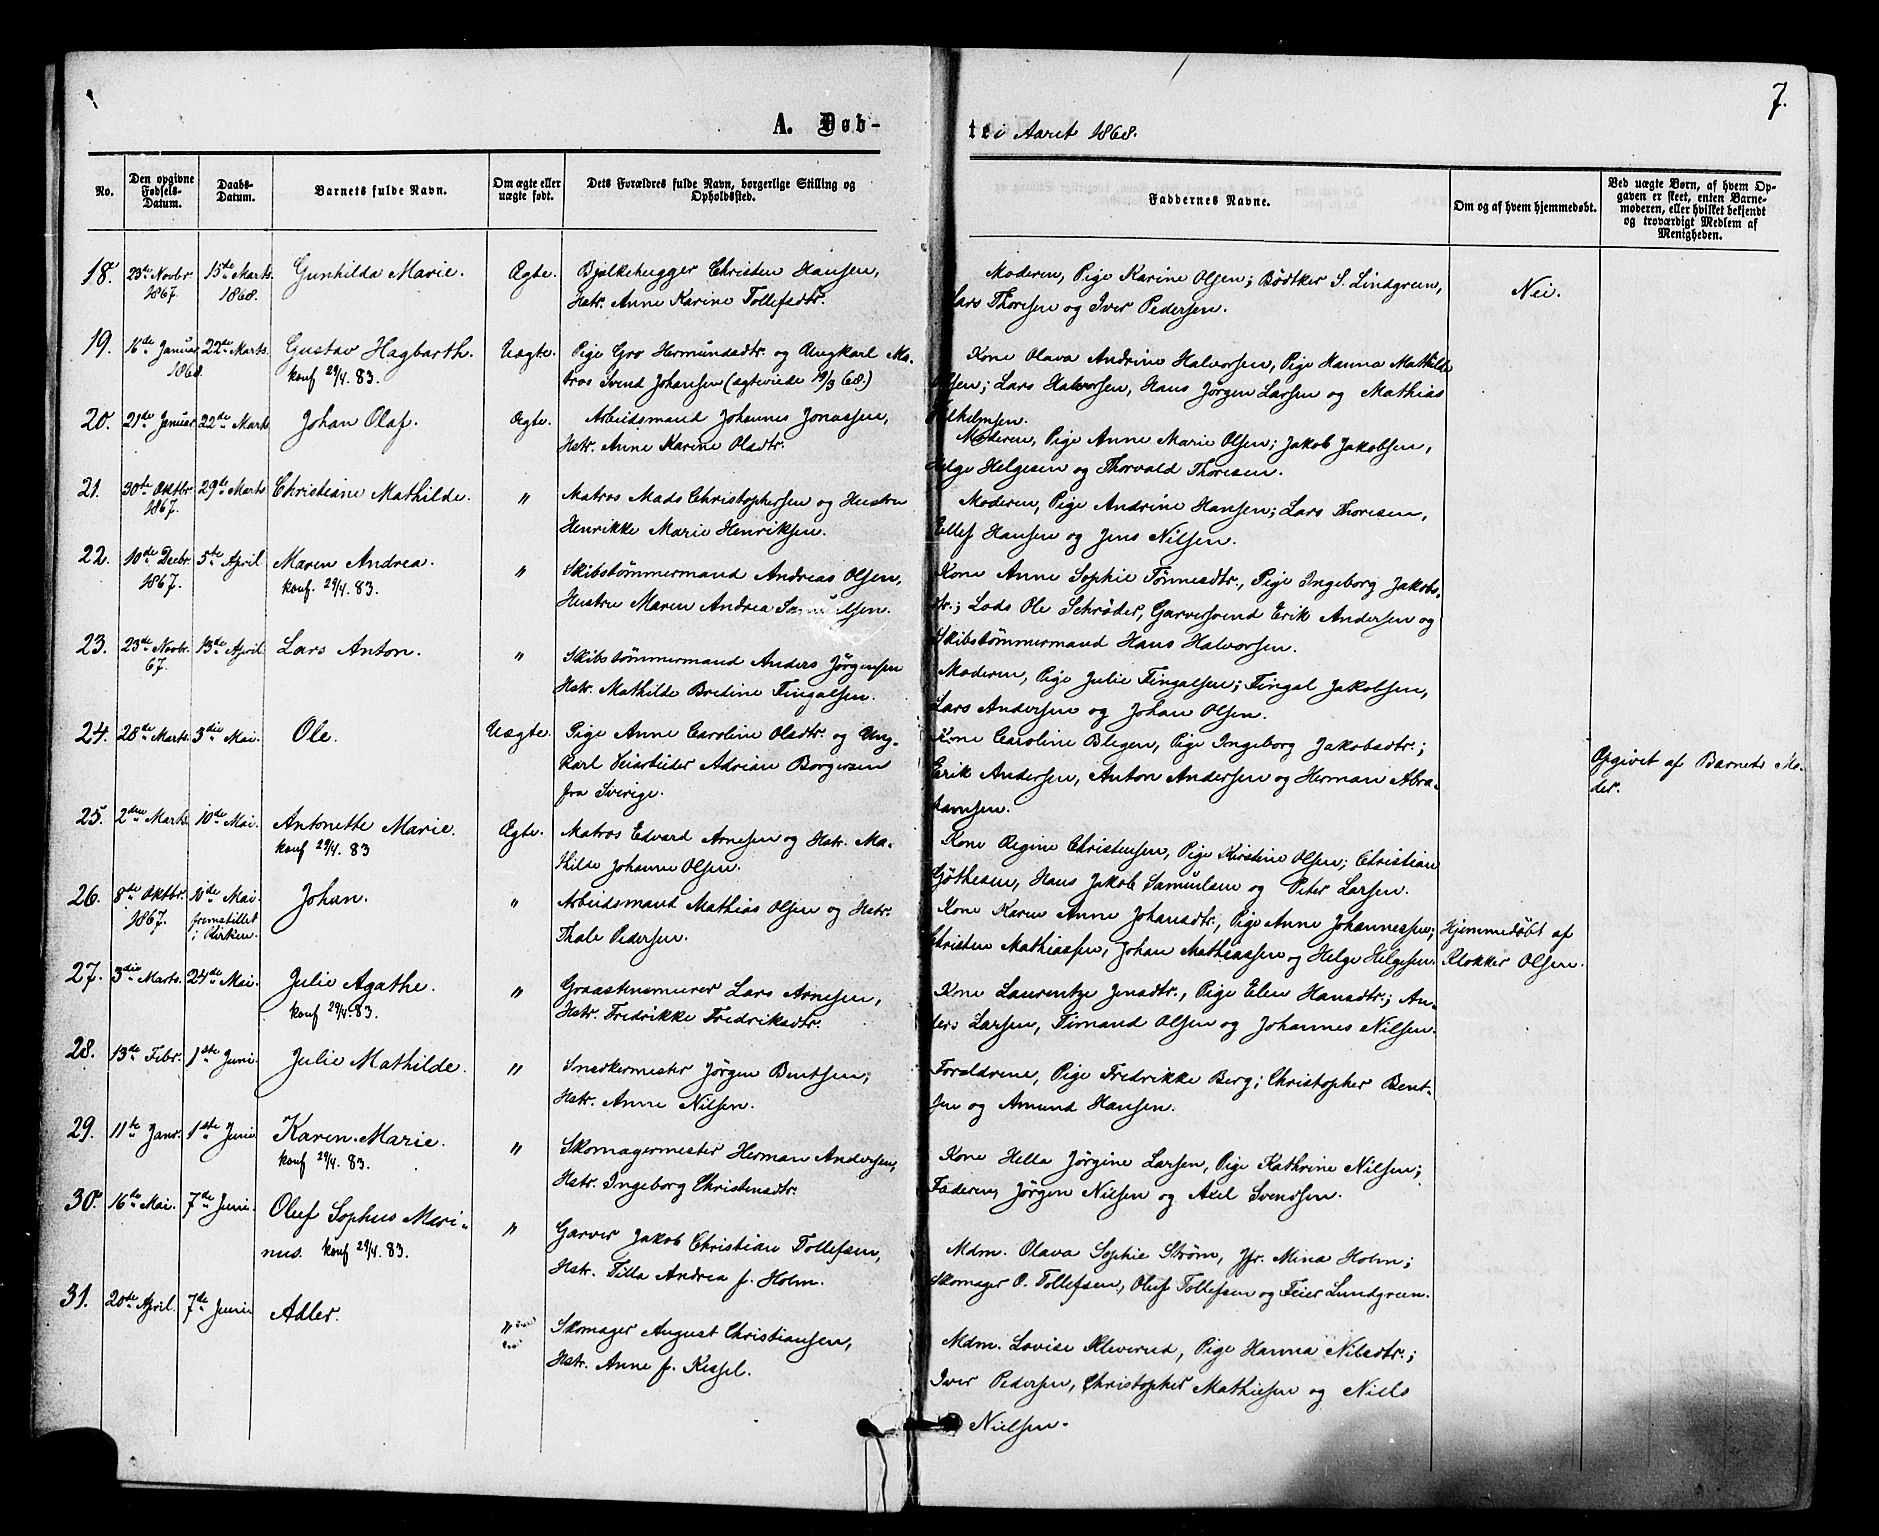 7.
A. Døb-
te i Aaret 1868.
No.
Den opgivne Fødsels-Datum.
Daabs-Datum.
Barnets fulde Navn.
Om ægte eller uægte født.
Dets Forældres fulde Navn, borgerlige Stilling og Opholdssted.
Faddernes Navne.
Om og af hvem hjemmedøbt.
Ved uægte Børn, af hvem Opgaven er skeet, enten Barnemoderen, eller hvilket bekjendt og troværdigt Medlem af Menigheden.
18. 23de Novbr 1867. 15de Marts 1868. Gunhilda Marie. Ægte. Bjelkehugger Christen Hansen,
Hstr. Anne Karine Tollefsdtr.
Moderen, Pige Karine Olsen; Bödtker S. Lindgreen,
Lars Thoresen og Iver Pedersen.
Nei.
19. 16de Januar 1868. 22de Marts. Gustav Hagbarth. Uægte. Pige Gro Hermundsdtr. og Ungkarl Ma-
konf 29/4. 83.
tros Svend Johansen (ægteviede 19/3 68.)
Kone Olava Andrine Halvorsen, Pige Hanna Mathilde
Olsen; Lars Halvorsen, Hans Jörgen Larsen og Mathias
20. 21de Januar 22de Marts Johan Olaf. Ægte. Arbeidsmand Johannes Jonassen,
Hstr. Anne Karine Olsdtr.
Moderen, Pige Anne Marie Olsen; Jakob Jakobsen,
Helge Helgesen og Thorvald Thoresen.
21. 30te Oktbr 1867. 29de Marts Christiane Mathilde. " Matros Mads Christophersen og Hustru
Henrikke Marie Henriksen.
Moderen, Pige Andrine Hansen; Lars Thoresen,
Ellef Hansen og Jens Nilsen.
22. 10de Decbr 1867. 5te April Maren Andrea. " Skibstømmermand Andreas Olsen,
konf. 29/4. 83.
Hustru Maren Andrea Samuelsen.
Kone Anne Sophie Tönnesdtr., Pige Ingeborg Jakobs-
dtr.; Lods Ole Schrøder, Garversvend Erik Andersen og
Skibstømmermand Hans Halvorsen.
23. 23de Novbr. 67. 13de April Lars Anton. " Skibstømmermand Anders Jörgensen
Hstr. Mathilde Bredine Fingalsen.
Moderen, Pige Julie Fingalsen; Fingal Jakobsen,
Lars Andersen og Johan Olsen.
24. 28de Marts. 3die Mai. Ole. Uægte. Pige Anne Caroline Olsdtr. og Ung-
karl Veiarbeider Adrian Borgersen
fra Sverige.
Kone Caroline Blegen, Pige Ingeborg Jakobsdtr.;
Erik Andersen, Anton Andersen og Herman Abra-
hamsen.
Opgivet af Barnets Mo-
der.
25. 2den Marts. 10de Mai. Antonette Marie. Ægte. Matros Edvard Arnesen og Hstr. Ma-
konf 29/4. 83
thilde Johanne Olsen.
Kone Regine Christensen, Pige Kirstine Olsen; Christian
Göthesen, Hans Jakob Samuelsen og Peter Larsen.
26. 8de Oktbr. 1867. 10de Mai fremstillet i Kirken. Johan. " Arbeidsmand Mathias Olsen og Hstr.
Thale Pedersen.
Kone Karen Anne Johansdtr., Pige Anne Johannessen;
Christen Mathiassen, Johan Mathiassen og Helge Helgesen.
Hjemmedöbt af
Klokker Olsen.
27. 3die Marts. 24de Mai. Julie Agathe. " Graastensmurer Lars Arnesen,
konf 29/4. 83.
Hstr. Fredrikke Fredriksdtr.
Kone Laurentze Jensdtr., Pige Elen Hansdtr.; An-
ders Larsen, Timand Olsen og Johannes Nilsen.
28. 13de Febr. 1ste Juni. Julie Mathilde. " Snedkermester Jörgen Bentsen,
Hstr. Anne Nilsen.
Forældrene, Pige Fredrikke Berg; Christopher Bent-
sen og Amund Hansen.
29. 11te Janr. 1ste Juni Karen Marie. " Skomagermester Herman Andersen,
konf 29/4. 83.
Hstr. Ingeborg Christensdtr.
Kone Hella Jörgine Larsen, Pige Kathrine Nilsen;
Faderen, Jörgen Nilsen og Axel Svendsen.
30. 16de Mai. 7de Juni. Oluf Sophus Mari-
nus. konf 29/4. 83.
" Garver Jakob Christian Tollefsen,
Hstr. Tilla Andrea f. Holm.
Mdm. Olava Sophie Ström, Jfr. Mina Holm;
Skomager O. Tollefsen, Oluf Tollefsen og Feier Lundgreen.
31. 20de April. 7de Juni Adler. " Skomager August Christiansen,
Hstr. Anne f. Kessel.
Mdm. Lovise Kleverud, Pige Hanna Nilsdtr.;
Iver Pedersen, Christopher Mathiesen og Niels
Nielsen.